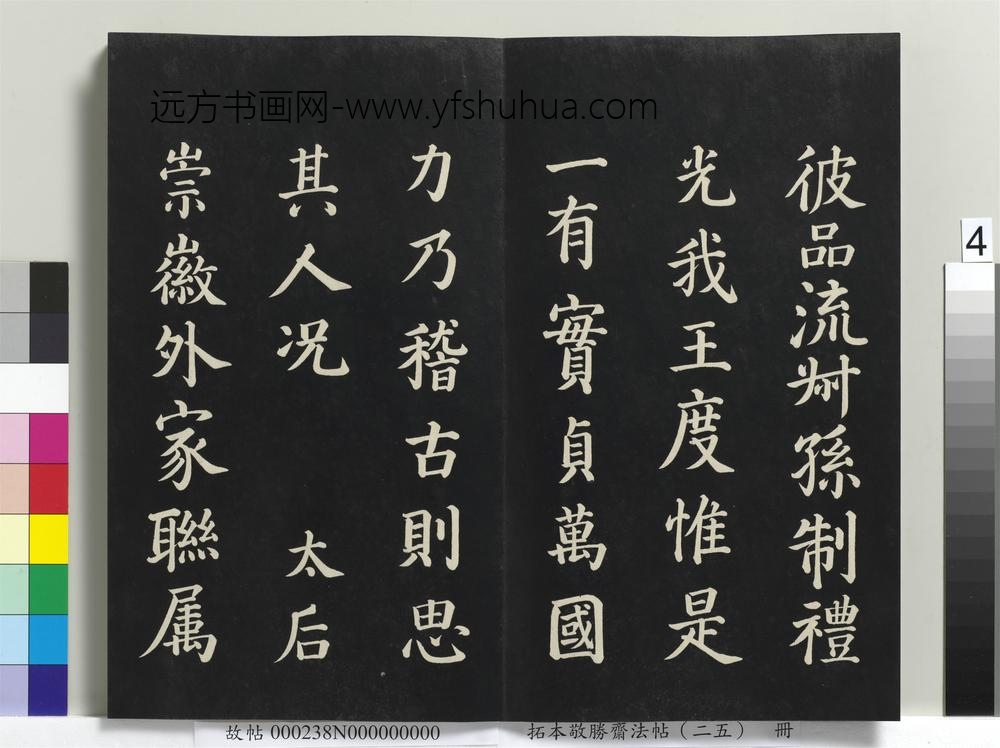 远方书画网-www.yfshuhua.com
彼品流叔孫制禮
光我王度惟是
一有實貞萬國
力乃稽古則思
其人况 太后
崇徽外家聯属
4
故帖 000238N000000000
拓本敬勝齋法帖（二五） 冊